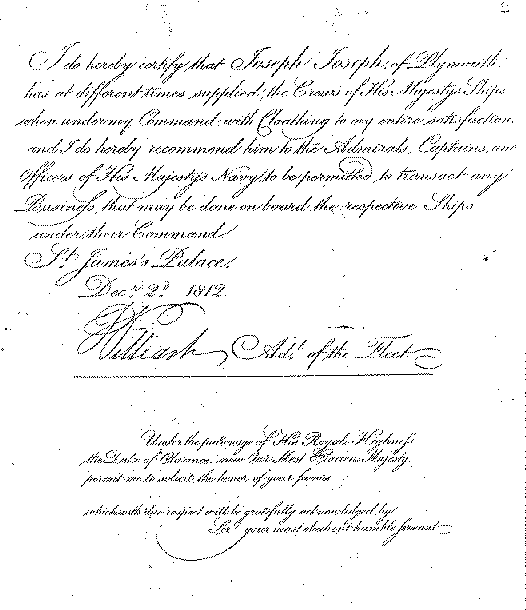 I do hereby certify, that Joseph Joseph, of Plymouth,
has at different times supplied, the Crews of His Majestys Ships
when under my Command, with Cloathing to my entire satisfaction,
and I do hereby recommend him to the Admirals, Captains, an
Officers of His Majestys Navy, to be permitted, to transact any
Business, that may be done on board, the respective Ships
under their Command
St. James's Palace,
Decr. 2d. 1812.
William, Adl. of the Fleet
Under the patronage of His Royal Highness
the Duke of Clarence, now His Most Gracious Majesty,
permit me to solicit, the honor of your favors
which with due respect will be gratefully acknowledged, by
Sir your most obedt. humble Servant